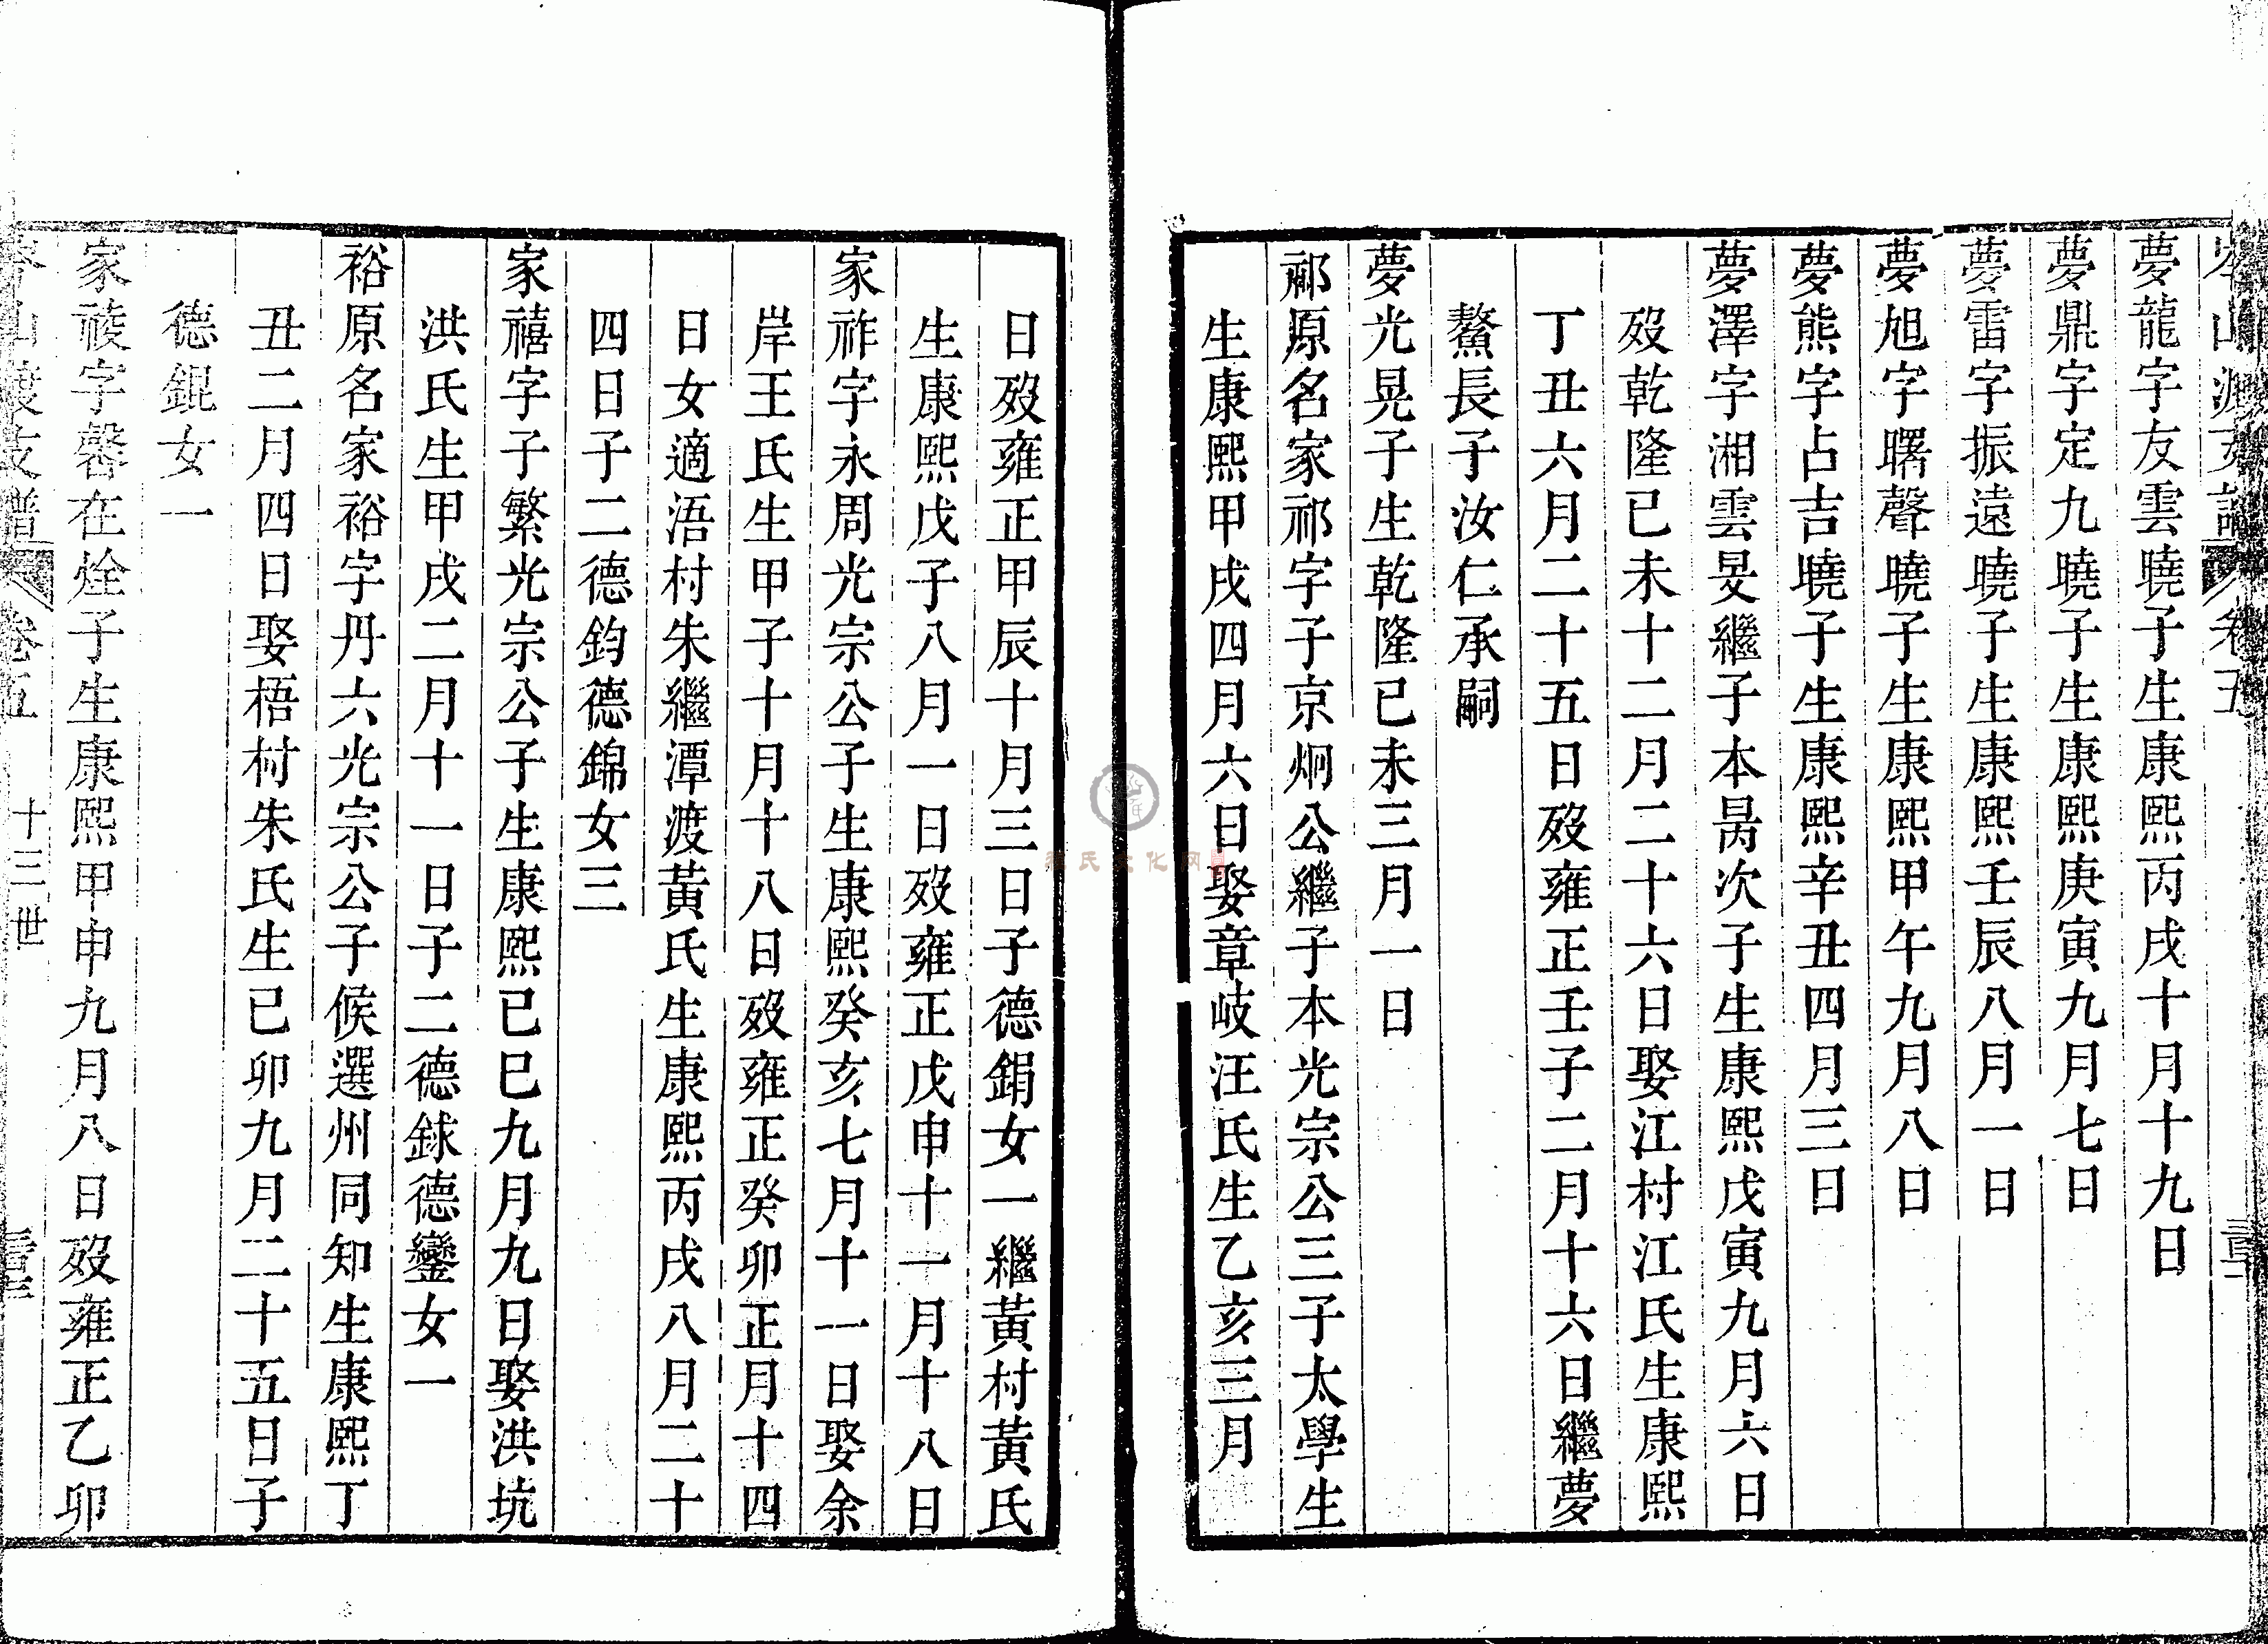 岑山渡支譜 卷五
夢龍字友雲曉子生康熙丙戌十月十九日
夢鼎字定九曉子生康熙庚寅九月七日
夢雷字振遠曉子生康熙壬辰八月一日
夢旭字曙聲曉子生康熙甲午九月八日
夢熊字占吉曉子生康熙辛丑四月三日
夢澤字湘雲旻繼子本昺次子生康熙戊寅九月六日
歿乾隆已未十二月二十六日娶江村江氏生康熙
丁丑六月二十五日歿雍正壬子二月十六日繼夢
鰲長子汝仁承嗣
夢光晃子生乾隆已未三月一日
祁原名家祁字子京炯公繼子本光宗公三子太學生
生康熙甲戌四月六日娶章岐汪氏生乙亥三月
日歿雍正甲辰十月三日子德鋗女一繼黃村黃氏
生康熙戊子八月一日歿雍正戊申十一月十八日
家祚字永周光宗公子生康熙癸亥七月十一日娶余
岸王氏生甲子十月十八日歿雍正癸卯正月十四
日女適浯村朱繼潭渡黃氏生康熙丙戌八月二十
四日子二德鈞德錦女三
家禧字子繁光宗公子生康熙已巳九月九日娶洪坑
洪氏生甲戌二月十一日子二德銶德鑾女一
裕原名家裕字丹六光宗公子候選州同知生康熙丁
丑二月四日娶梧村朱氏生已卯九月二十五日子
德錕女一
家祾字馨在烇子生康熙甲申九月八日歿雍正乙卯
岑山渡支譜 卷五 十三世
源氏文化网